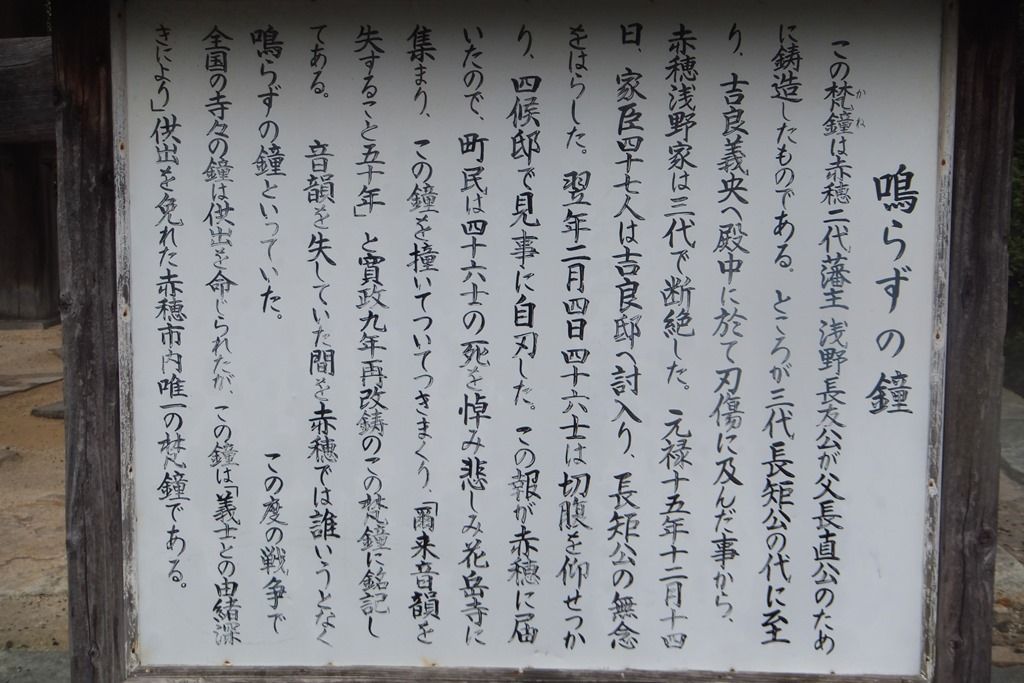 鳴らずの鐘
この梵鐘は赤穂二代藩主浅野長友公が父長直公のため
に鋳造したものである。ところが三代長矩公の代に至
り、吉良義央へ殿中に於て刃傷に及んだ事から、
赤穂浅野家は三代で断絶した。元禄十五年十二月十四
日、家臣四十七人は吉良邸へ討入り、長矩公の無念
をはらした。翌年二月四日四十六士は切腹を仰せつか
り、四候邸で見事に自刃した。この報が赤穂に届
いたので、町民は四十六士の死を悼み悲しみ花岳寺に
集まり、この鐘を撞いてついてつきまくり、「爾来音韻を
失すること五十年」と寛政九年再改鋳のこの梵鐘に銘記し
てある。音韻を失していた間を赤穂では誰いうとなく
鳴らずの鐘といっていた。この度の戦争で
全国の寺々の鐘は供出を命じられたが、この鐘は「義士との由緒深
きにより」供出を免れた赤穂市内唯一の梵鐘である。
かね